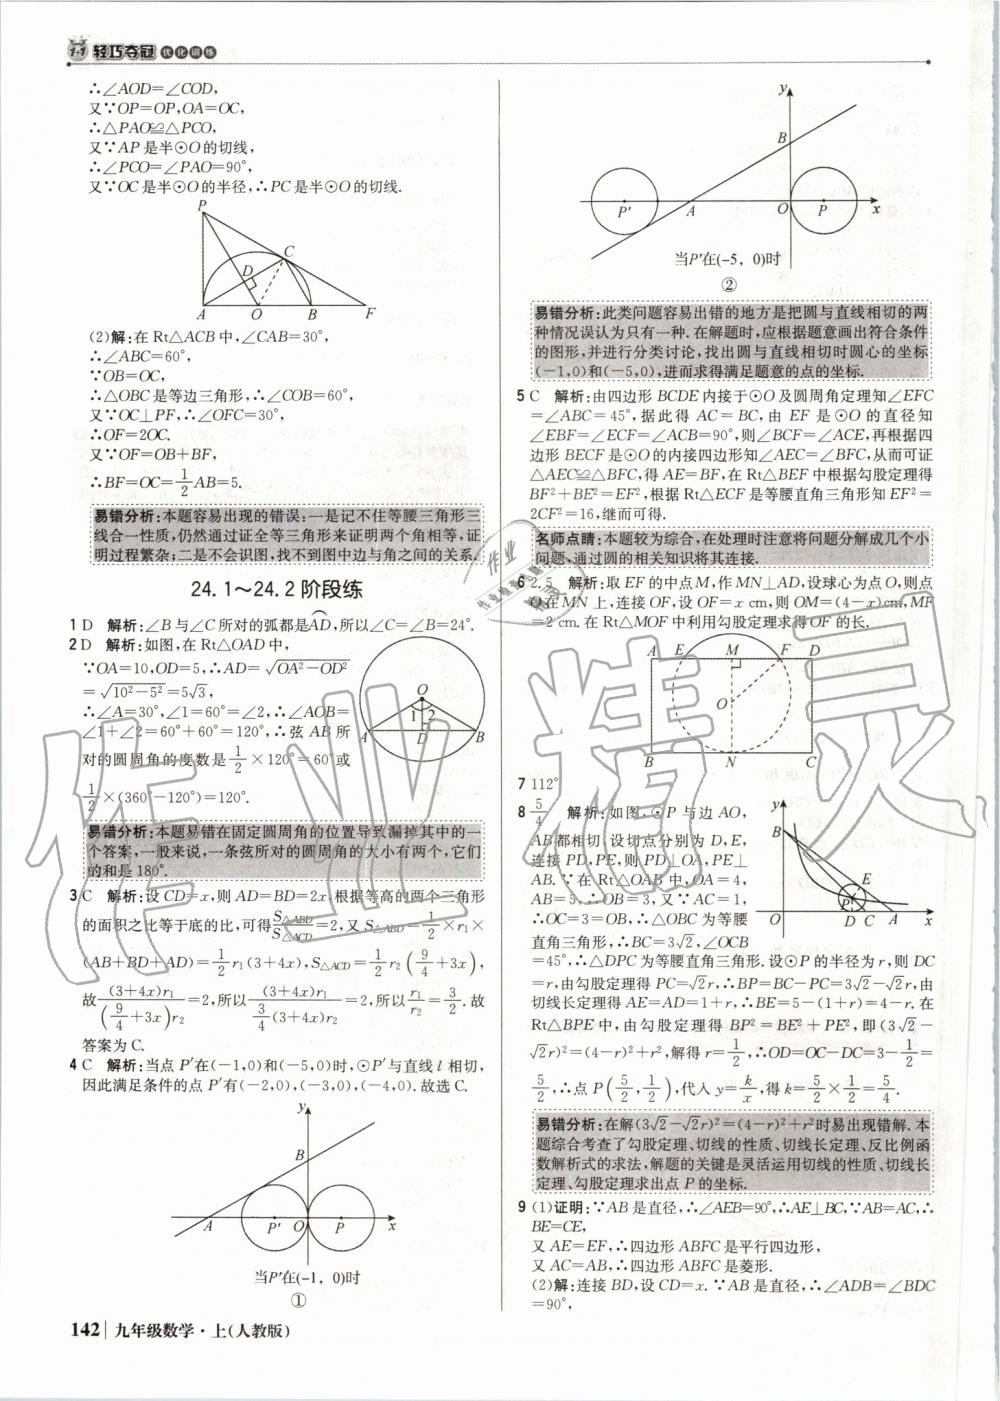 1+1 轻巧夺冠 优化训练
∴∠AOD=∠COD,
又∵OP=OP,OA=OC,
∴△PAO≌△PCO,
又∵AP是半⊙O的切线,
∴∠PCO=∠PAO=90°,
又∵OC是半⊙O的半径,∴PC是半⊙O的切线.
P
C
D
A O B F
(2)解:在Rt△ACB中,∠CAB=30°,
∴∠ABC=60°,
∵OB=OC,
∴△OBC是等边三角形,∴∠COB=60°,
又∵OC⊥PF,∴∠OFC=30°,
∴OF=2OC.
又∵OF=OB+BF,
∴BF=OC=1/2AB=5.
易错分析:本题容易出现的错误:一是记不住等腰三角形三
线合一性质,仍然通过证全等三角形来证明两个角相等,证
明过程繁杂;二是不会识图,找不到图中边与角之间的关系.
24.1～24.2阶段练
1 D 解析:∠B与∠C所对的弧都是AD,所以∠C=∠B=24°.
2 D 解析:如图,在Rt△OAD中,
∵OA=10,OD=5,∴AD=√(OA²−OD²)
=√(10²−5²)=5√3,
∴∠A=30°,∠1=60°=∠2,∴∠AOB=
∠1+∠2=60°+60°=120°,∴弦AB所
对的圆周角的度数是1/2×120°=60°或
1/2×(360°−120°)=120°.
O
1 2
A D B
易错分析:本题易错在固定圆周角的位置导致漏掉其中的一
个答案,一般来说,一条弦所对的圆周角的大小有两个,它们
的和是180°.
3 C 解析:设CD=x,则AD=BD=2x,根据等高的两个三角形
的面积之比等于底的比,可得S△ABD/S△ACD=2,又S△ABD=1/2×r₁×
(AB+BD+AD)=1/2r₁(3+4x),S△ACD=1/2r₂(9/4+3x),
故(3+4x)r₁/(9/4+3x)r₂=2,所以(3+4x)r₁/3/4(3+4x)r₂=2,所以r₁/r₂=3/2.故
答案为C.
4 C 解析:当点P′在(−1,0)和(−5,0)时,⊙P′与直线l相切,
因此满足条件的点P′有(−2,0),(−3,0),(−4,0).故选C.
y
B
A P′ O P x
当P′在(−1，0)时
①
142 九年级数学·上(人教版)
y
B
P′ A O P x
当P′在(−5，0)时
②
易错分析:此类问题容易出错的地方是把圆与直线相切的两
种情况误认为只有一种.在解题时,应根据题意画出符合条件
的图形,并进行分类讨论,找出圆与直线相切时圆心的坐标
(−1,0)和(−5,0),进而求得满足题意的点的坐标.
5 C 解析:由四边形BCDE内接于⊙O及圆周角定理知∠EFC
=∠ABC=45°,据此得AC=BC,由EF是⊙O的直径知
∠EBF=∠ECF=∠ACB=90°,则∠BCF=∠ACE,再根据四
边形BECF是⊙O的内接四边形知∠AEC=∠BFC,从而可证
△AEC≌△BFC,得AE=BF,在Rt△BEF中根据勾股定理得
BF²+BE²=EF²,根据Rt△ECF是等腰直角三角形知EF²=
2CF²=16,继而可得.
名师点睛:本题较为综合,在处理时注意将问题分解成几个小
问题,通过圆的相关知识将其连接.
6 2.5 解析:取EF的中点M,作MN⊥AD,设球心为点O,则点
O在MN上,连接OF,设OF=x cm,则OM=(4−x)cm,MF
=2 cm.在Rt△MOF中利用勾股定理求得OF的长.
A E M F D
O
B N C
7 112°
8 5/4 解析:如图,⊙P与边AO,
AB都相切,设切点分别为D,E,
连接PD,PE,则PD⊥OA,PE⊥
AB.∵在Rt△OAB中,OA=4,
AB=5,∴OB=3,又∵AC=1,
∴OC=3=OB,∴△OBC为等腰
直角三角形,∴BC=3√2,∠OCB
y
B
E
P
O D C A x
=45°,∴△DPC为等腰直角三角形.设⊙P的半径为r,则DC
=r,由勾股定理得PC=√2r,∴BP=BC−PC=3√2−√2r,由
切线长定理得AE=AD=1+r,∴BE=5−(1+r)=4−r.在
Rt△BPE中,由勾股定理得BP²=BE²+PE²,即(3√2−
√2r)²=(4−r)²+r²,解得r=1/2,∴OD=OC−DC=3−1/2=
5/2,∴点P(5/2,1/2),代入y=k/x,得k=5/2×1/2=5/4.
易错分析:在解(3√2−√2r)²=(4−r)²+r²时易出现错解.本
题综合考查了勾股定理、切线的性质、切线长定理、反比例函
数解析式的求法,解题的关键是灵活运用切线的性质、切线长
定理、勾股定理求出点P的坐标.
9 (1)证明:∵AB是直径,∴∠AEB=90°,∴AE⊥BC,∵AB=AC,∴
BE=CE,
又AE=EF,∴四边形ABFC是平行四边形,
又AC=AB,∴四边形ABFC是菱形.
(2)解:连接BD,设CD=x.∵AB是直径,∴∠ADB=∠BDC
=90°,
作业精灵